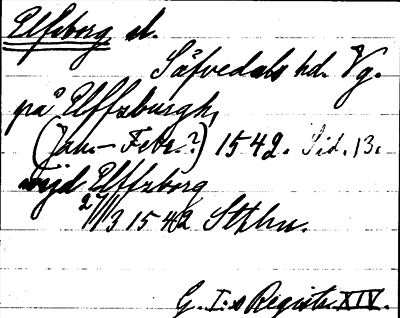 Elfsborg sl.
Säfvedals hd. Vg.
på Elffzburgh,
(Jan.-Febr.?) 1542. Sid. 13.
wijd Elffzborg
27/3 1542 Sthlm.
G. I:s Registr. XIV.